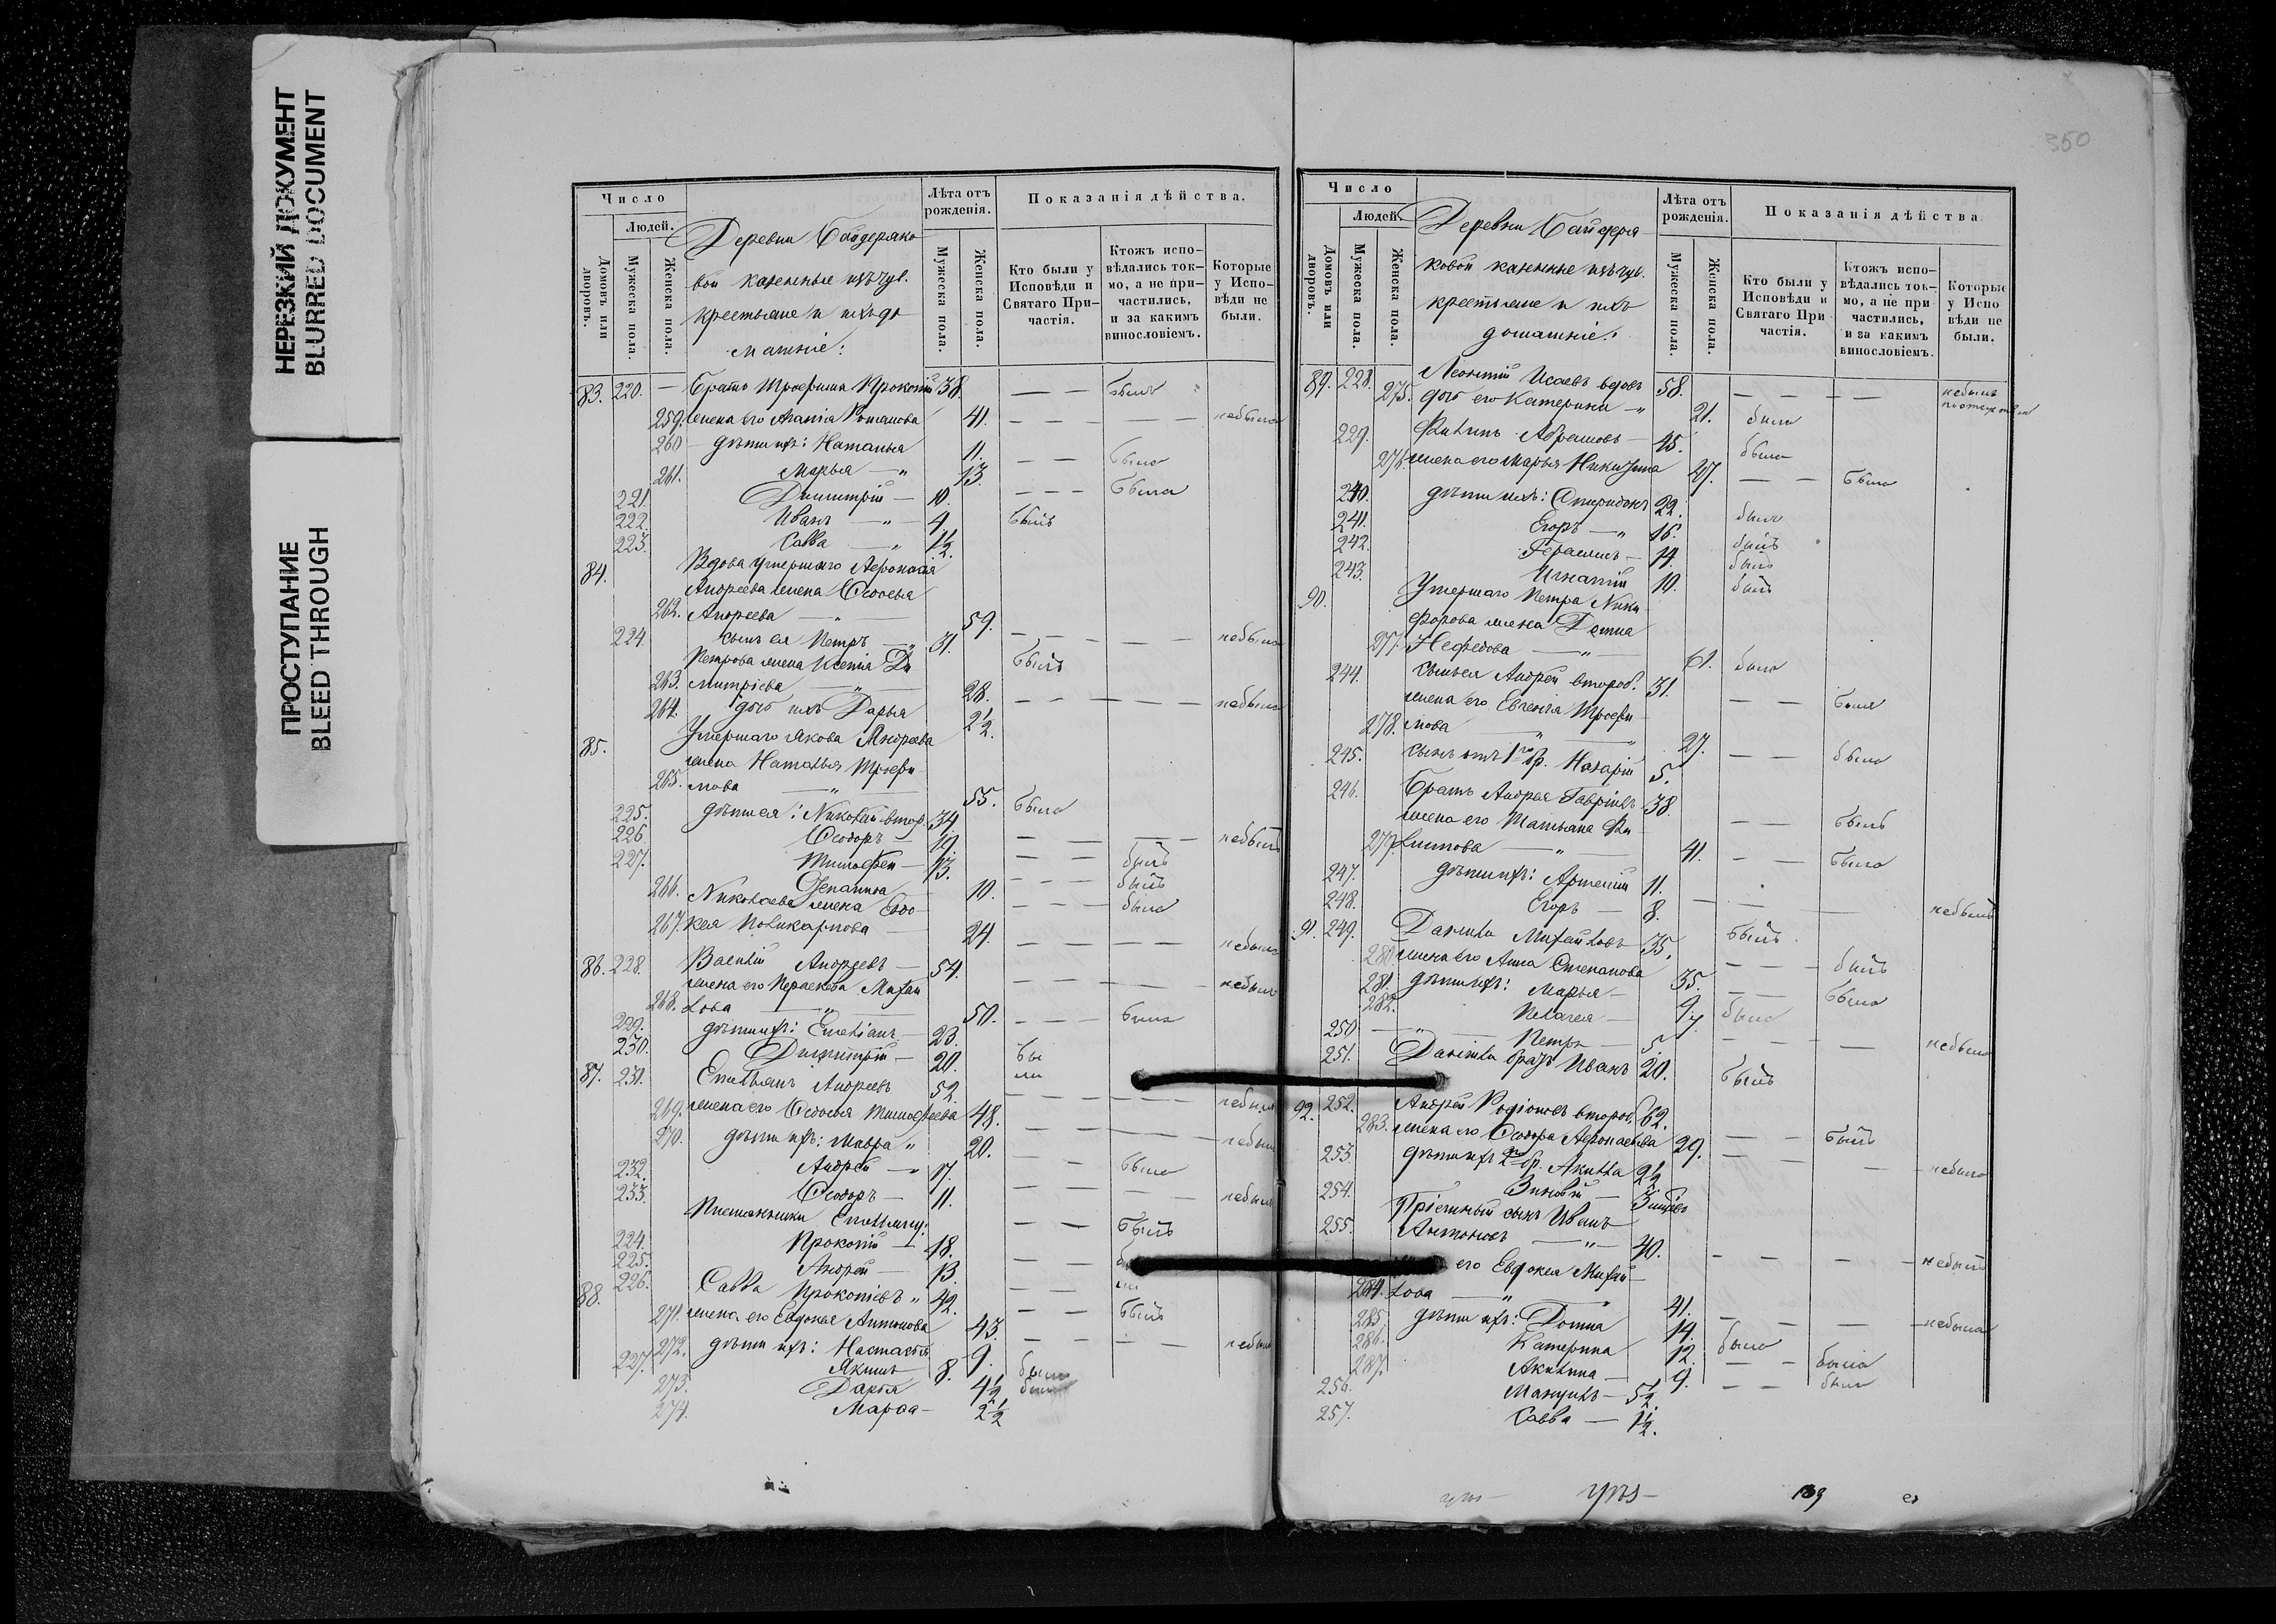 НЕРЕЗКИЙ ДОКУМЕНТ
BLURRED DOCUMENT
ПРОСТУПАНИЕ
BLEED THROUGH
350
Число
Людей.
Домовъ или дворовъ.
Мужеска пола.
Женска пола.
Деревни Байдеряко
вой казенные изъ чув.
крестьяне и ихъ до
машніе:
Лѣта отъ рожденія.
Мужеска пола.
Женска пола.
Показанія дѣйства.
Кто были у Исповѣди и Святаго При-частія.
Ктожъ испо-вѣдались ток-мо, а не при-частились, и за какимъ винословіемъ.
Которые у Испо-вѣди не были.
83. 220. — Братъ Трофима Прокопій 38. — — былъ
259. жена его Агапія Романова 41. — — — — небыла
260 — дѣти ихъ: Наталья 11. — — была
261. Марья — " 13. — — — была
221. Димитрій — 10. былъ
222. Иванъ — " — 4.
223. Савва — " 1½.
84. Вдова умершаго Аѳонасія
Андреева жена Ѳедосья
262. Андреева — " — 59. — — — — небыла
224. сынъ ея Петръ — " 31. былъ
Петрова жена Ксенія Ди
263. митріева — " — 28. — — — — небыла
264. дочь ихъ Дарья 2½.
85. Умершаго Якова Андреева
жена Наталья Трофи
265. мова — " — 55. была
225. дѣти ея: Николай втор. 34. — — — небылъ
226. Ѳеодоръ — 19. — — былъ
227. Тимофей — 13. — — — былъ
266. 10. — — — была
Николаева жена Евдо-
267. кея Поликарпова — 24. — — — — небыла
86. 228. Василій Андреевъ — 54. — — — — небылъ
жена его Параскева Михай
268. лова — " — 50. — — — была
229. дѣти ихъ: Емеліанъ — 23. бы
230. Димитрій — 20. ли
87. 231. Емельянъ Андреевъ 52. — — — — небылъ
269. жена его Ѳедосья Тимофеева 48. — — — — небыла
270. дѣти ихъ: Мавра " 20. — — была
232. Андрей — " 17. — — — — небылъ
233. Ѳеодоръ — 11. — — былъ
Племянники Емельяну:
224. Прокопій — 18.
225. Андрей — 13.
88. 226. Савва Прокопіевъ " 42. — — былъ
271. жена его Евдокея Антонова 43. — — — небыла
272. дѣти ихъ: Настасья 9. была
227. Якимъ 8. былъ
273. Дарья 4½
274. Марѳа — 2½
Число
Людей.
Домовъ или дворовъ.
Мужеска пола.
Женска пола.
Деревни Байдеря
ковой казенные изъ чув.
крестьяне и ихъ
домашніе:
Лѣта отъ рожденія.
Мужеска пола.
Женска пола.
Показанія дѣйства
Кто были у Исповѣди и Святаго При частія.
Ктожъ испо-вѣдались ток-мо, а не при частились, и за какимъ винословіемъ.
Которые у Испо вѣди не были.
89. 228. Леонтій Исаевъ вдовъ 58. — — — — небылъ
275. дочь его Катерина — " 21. была
229. Филипъ Абрамовъ — 45. былъ
276. жена его Марья Никитина 47. — — была
240. дѣти ихъ: Спиридонъ 22. былъ
241. Егоръ — " 16. былъ
242. Герасимъ — 14. былъ
243. Игнатій 10. былъ
90. Умершаго Петра Ники
форова жена Домна
277. Нефедова — " — 61. была
244. сынъ ея Андрей второб. 31. — — былъ
жена его Евгенія Трофи
278. мова — " — 27. — — была
245. сынъ отъ 1го бр. Назарій 5.
246. Братъ Андрея Гавріилъ 38. — — былъ
жена его Татьяна Фи
279. липпова — " — 41. — — была
247. дѣти ихъ: Артемій 11. — — — небылъ
248. Егоръ — 8.
91. 249. Данила Михайловъ 35. былъ
280 жена его Анна Степанова 35. — — — была
281. дѣти ихъ: Марья — 9. — — была
282. Пелагея — 7. была
250. — " — Петръ — 5 — — — — небылъ
251. Данила братъ Иванъ 20. былъ
92. 252. Андрей Родіоновъ второб. 62. — — былъ
283. жена его Ѳедора Аѳонасьева 29. — — — — небыла
253. дѣти ихъ 2го бр. Акилла 2½
254. Зиновій — 3 мѣсяц
Пріемный сынъ Иванъ
255. Антоновъ — " — 40. — — — — небылъ
его Евдокея Михай—
284. лова — " — 41. — — — небыла
285. дѣти ихъ: Домна 14. была
286. Катерина 12. — — была
287. Акилина — 9. — — была
256. Мануилъ — 5½.
257. Савва — 1½.